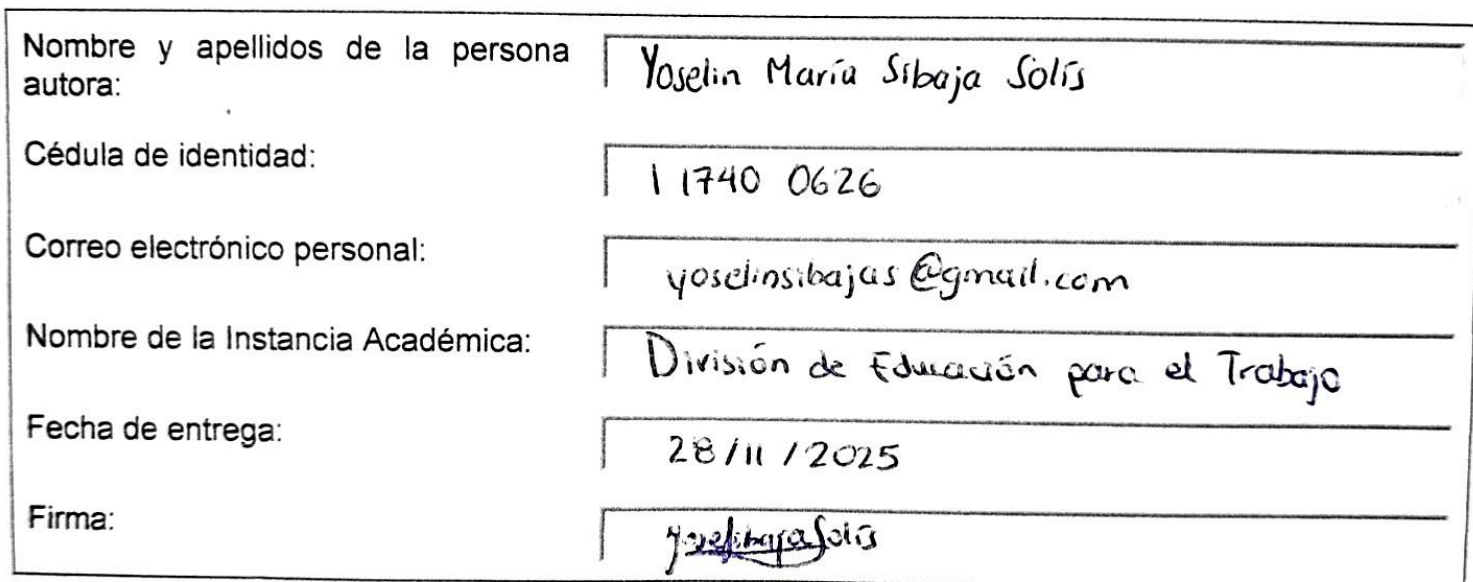 Nombre y apellidos de la persona
autora:
Yoselin María Sibaja Solís
Cédula de identidad:
1 1740 0626
Correo electrónico personal:
yoselinsibajas@gmail.com
Nombre de la Instancia Académica:
División de Educación para el Trabajo
Fecha de entrega:
28/11/2025
Firma: